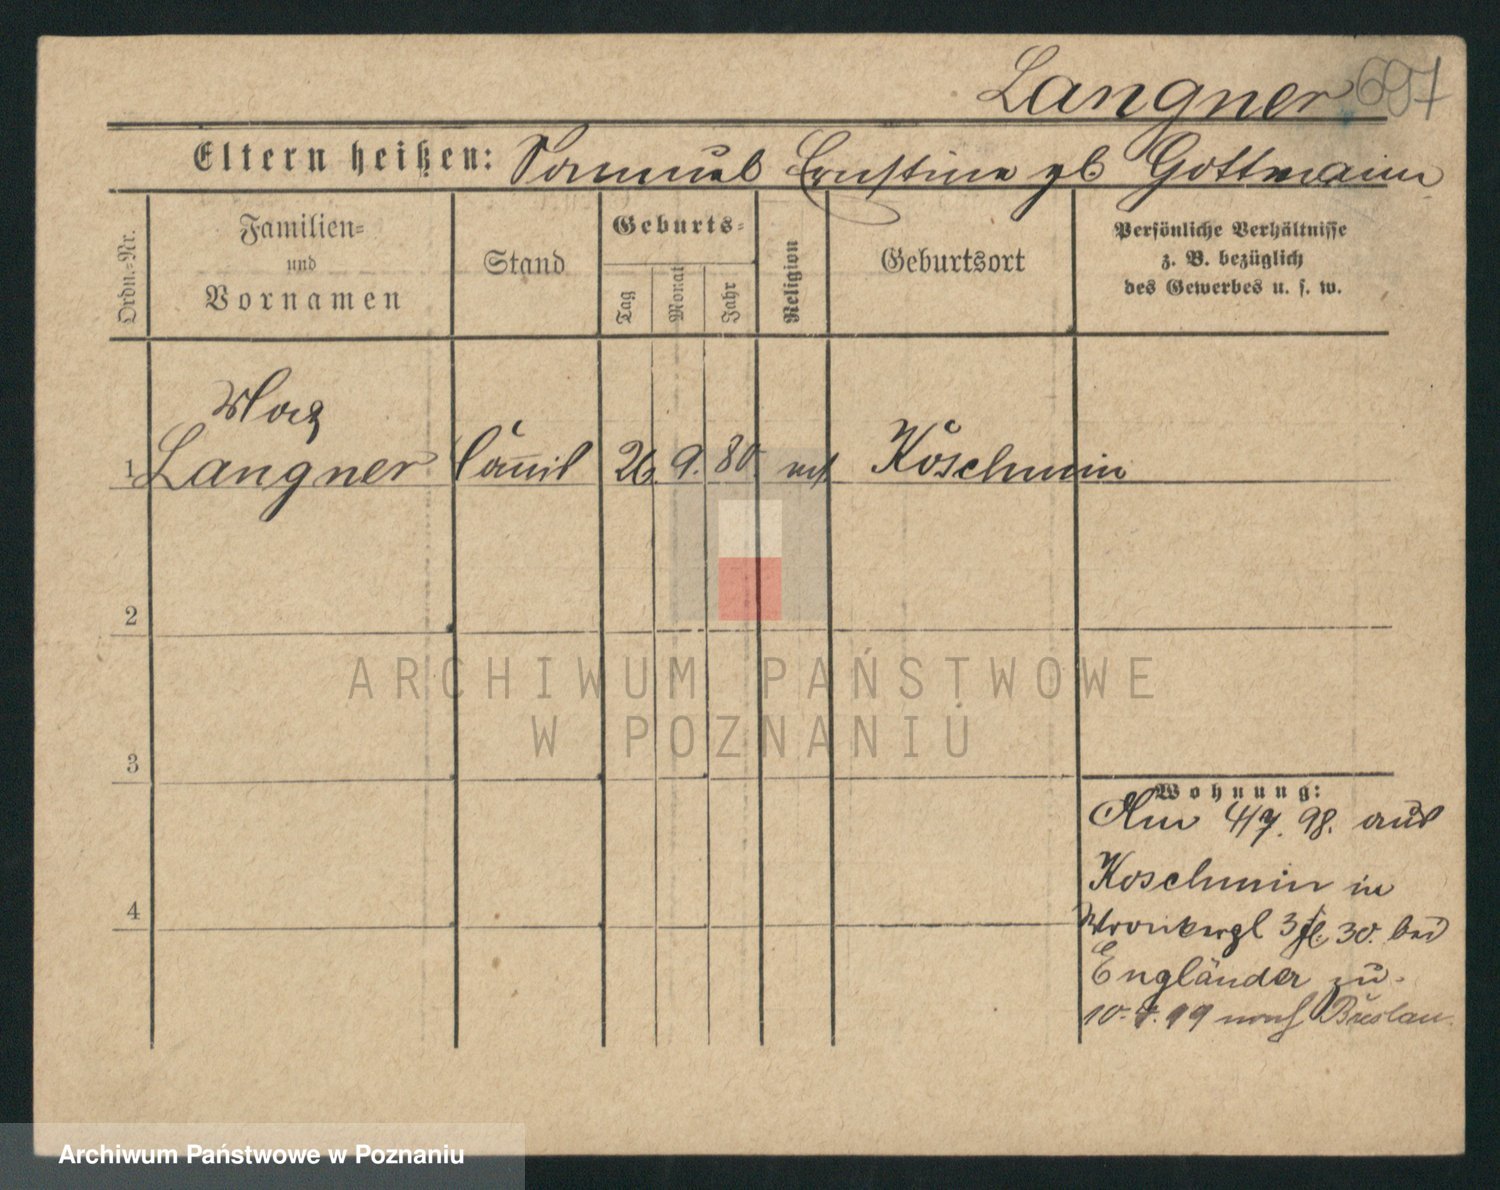 Langner 697
Eltern heißen: Samuel Ernstine gb Gottmann
Ordn.-Nr.
Familien-
und
Vornamen
Stand
Geburts-
Tag
Monat
Jahr
Religion
Geburtsort
Persönliche Verhältnisse
z. B. bezüglich
des Gewerbes u. s. w.
Max
1 Langner 26. 9. 80. Koschmin
2
3
4
Wohnung:
Am 4/7. 98. aus
Koschmin in
30. bei
Engländer zu.
99 nach Breslau.
ARCHIWUM PAŃSTWOWE
W POZNANIU
Archiwum Państwowe w Poznaniu